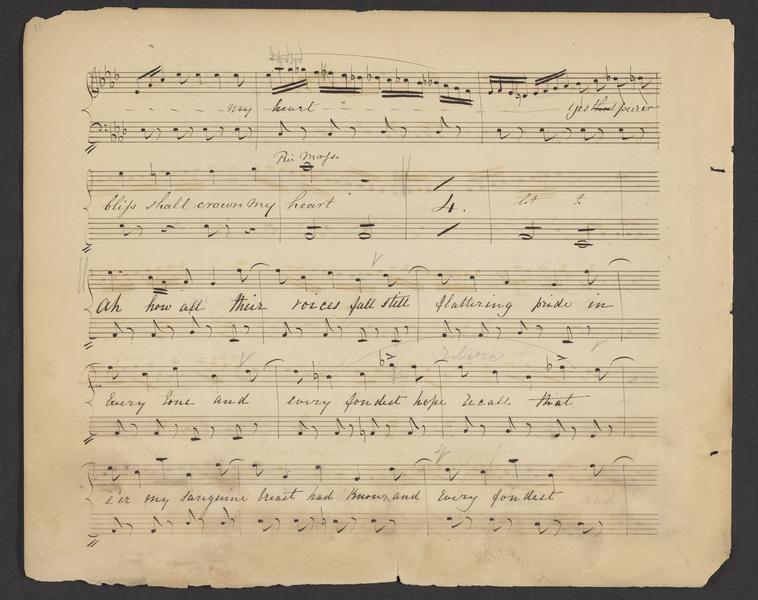 my heart yes thou purer
Piu Mosso
bliss shall crown my heart 4.
Ah how all their voices fall still flattering pride in
Every tone and every fondest hope recalls that
e'er my sanguine breast had known and Every fondest and